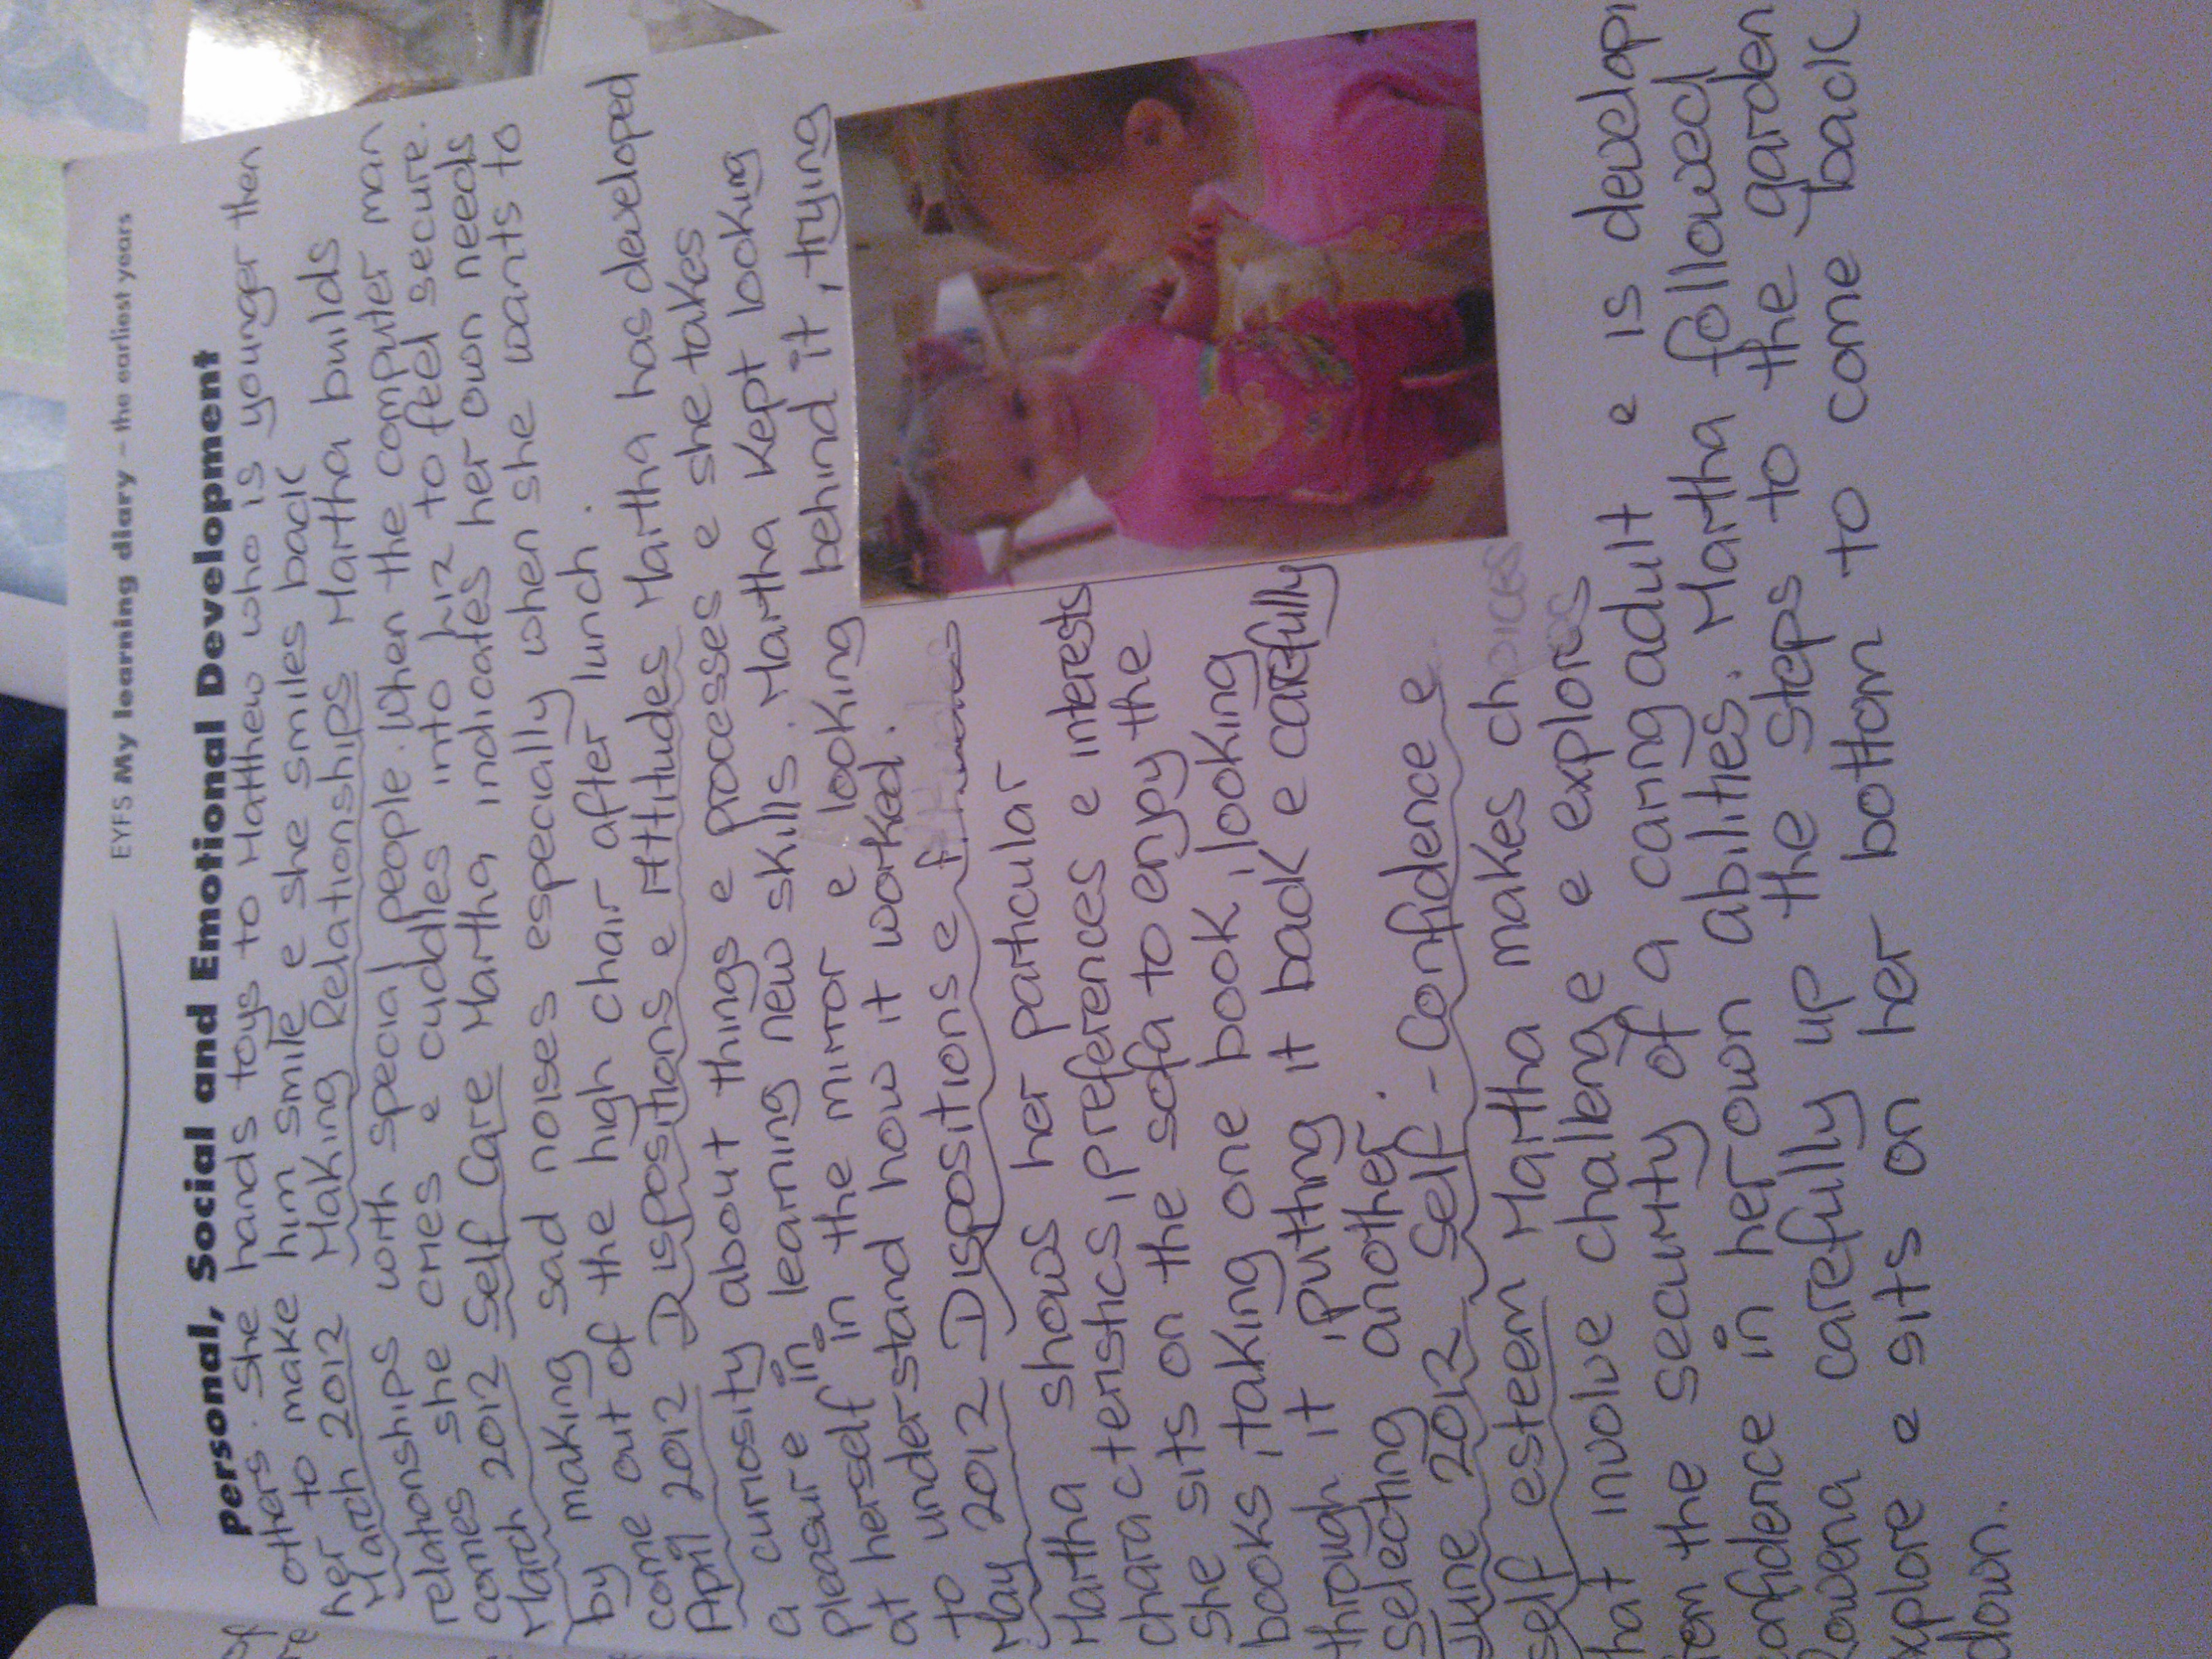 EYFS My learning diary – the earliest years
Personal, Social and Emotional Development
others. She hands toys to Matthew who is younger then
her to make him smile e she smiles back
March 2012 Making Relationships Martha builds
relationships with special people. When the computer man
comes she cries e cuddles into Liz to feel secure.
March 2012 Self Care Martha indicates her own needs
by making sad noises especially when she wants to
come out of the high chair after lunch.
April 2012 Dispositions e Attitudes Martha has developed
a curiosity about things e processes e she takes
pleasure in learning new skills. Martha kept looking
at herself in the mirror e looking behind it, trying
to understand how it worked.
May 2012 Dispositions e
Martha shows her particular
characteristics, preferences e interests
She sits on the sofa to enjoy the
books, taking one book, looking
through it, putting it back e carefully
selecting another.
June 2012 Self-Confidence e
self esteem Martha makes choices
hat involve challenge e explores
rom the security of a caring adult e is developi
onfidence in her own abilities. Martha followed
Rowena carefully up the steps to the garden
xplore e sits on her bottom to come back
down.